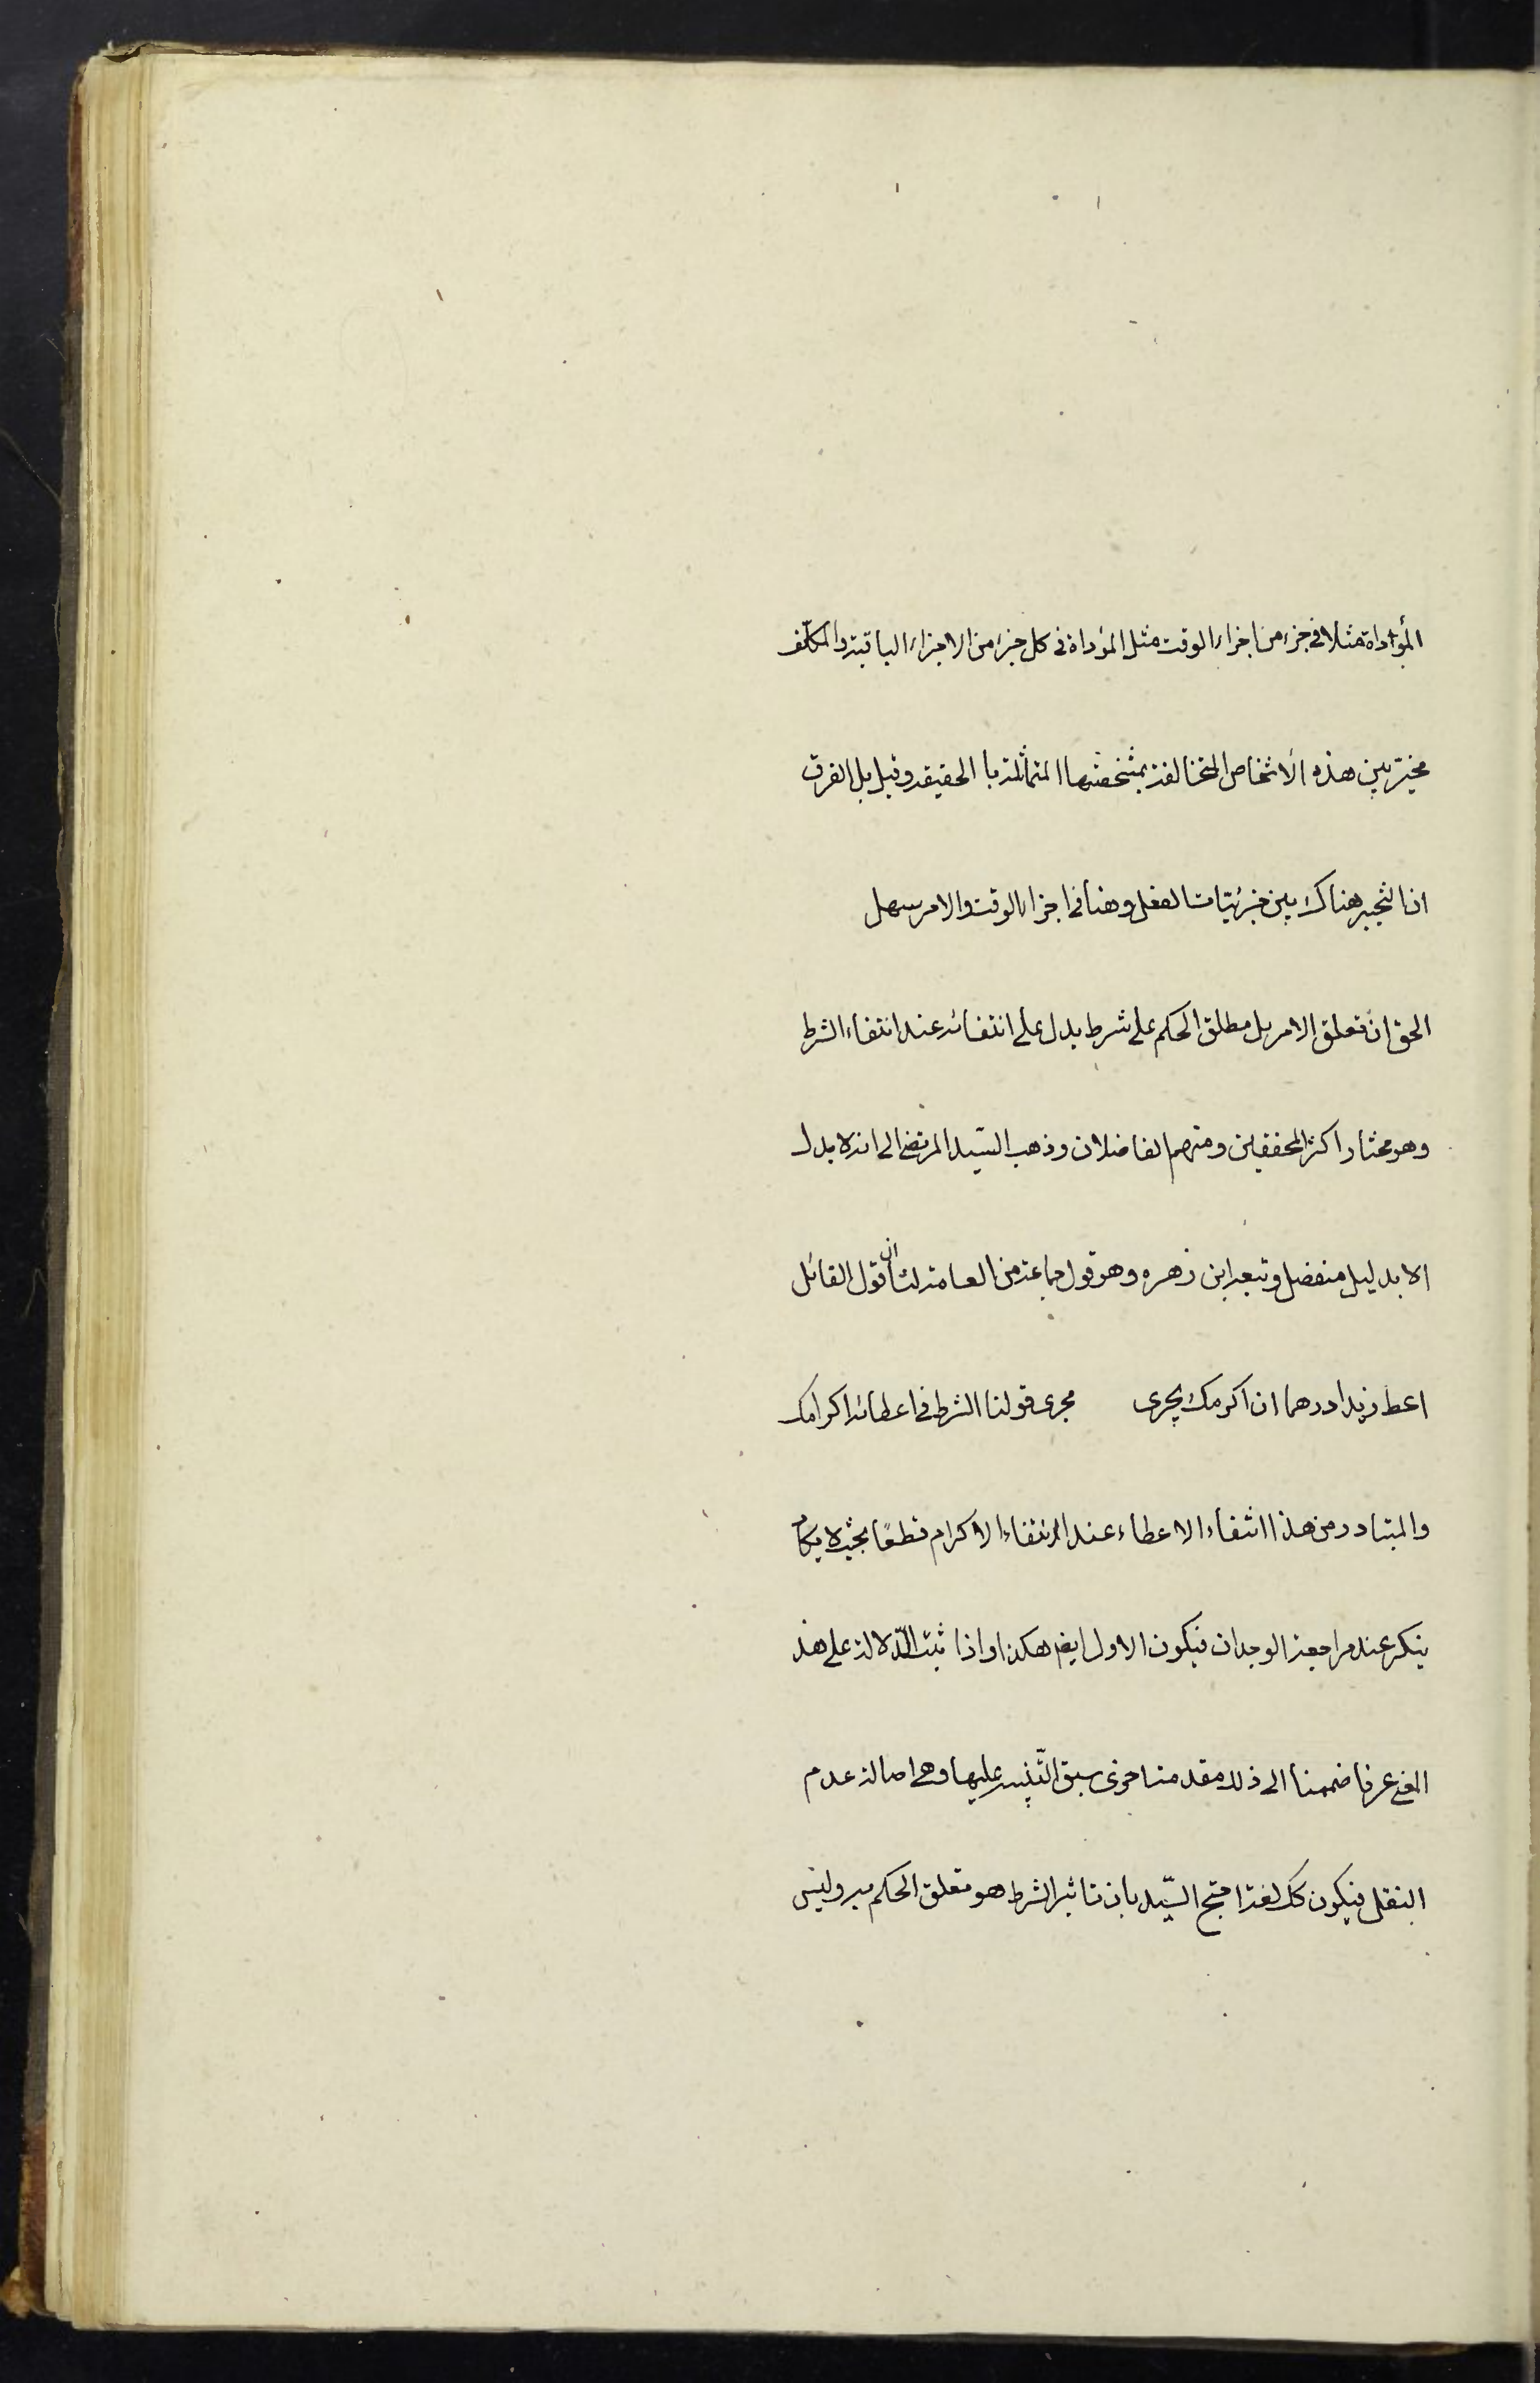 المؤداة مثلا فى جزء من اجزاء الوقت مثل المؤداة فى كل جزء من الاجزاء الباقية والمكلف
مخير بين هذه الأشخاص المتخالفة بتشخصها المتماثلة با الحقيقه وقيل بل الفرق
ان التخيير هناك بين جزئيات الفعل وهنا فى اجزاء الوقت والامر سهل
الحق ان تعلق الامر بل مطلق الحكم على شرط يدل على انتفائه عند انتفاء الشرط
وهو مختار اكثر المحققين ومنهم الفاضلان وذهب السيد المرتضى الى انه لا يدل
الا بدليل منفصل وتبعه ابن زهره وهو قول جماعة من العامة لنا ان قول القائل
اعط زيدا درهما ان اكرمك يجرى مجرى قولنا الشرط فى اعطائه اكرامك
والمتبادر من هذا انتفاء الاعطاء عند انتفاء الاكرام قطعًا بحيث لا يكاد
ينكر عند مراجعة الوجدان فيكون الاول ايضا هكذا واذا ثبت الدّلالة على هذ
المعنى عرفا ضممنا الى ذلك مقدمة اخرى سبق التّنبيه عليها وهى اصالة عدم
النقل فيكون كك لغة احتج السيّد بان تاثير الشرط هو تعلق الحكم به وليس